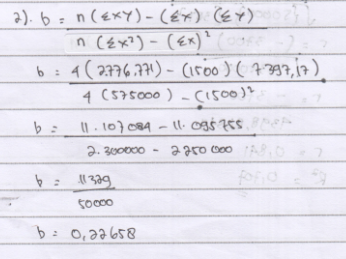 2). b = n (ΣXY) - (ΣX) (ΣY)
n (ΣX²) - (ΣX)²
b = 4 (2.776.771) - (1500) (7397,17)
4 (575000) - (1500)²
b = 11.107084 - 11.095755
2.300000 - 2250000
b = 11329
50000
b = 0,22658